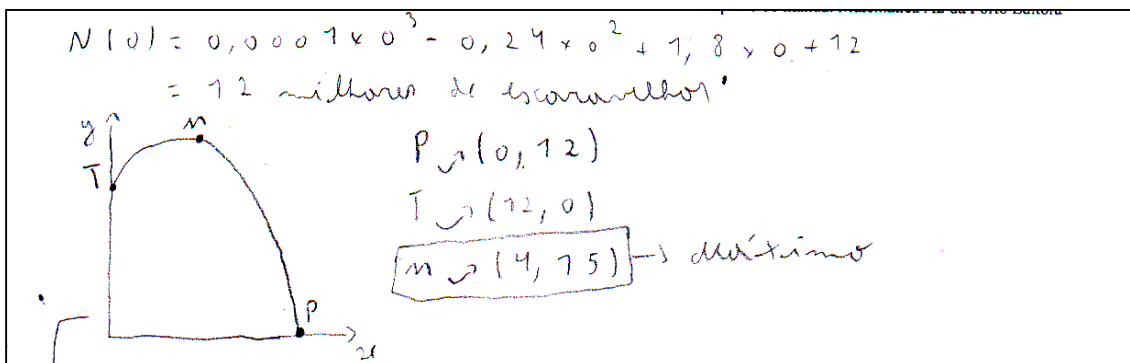 N(0) = 0,0001 x 0³ - 0,24 x 0² + 1,8 x 0 + 12
= 12 milhares de escaravelhos
y
M
T
P
x
P ↝ (0, 12)
T ↝ (12, 0)
M ↝ (4, 15) → Máximo